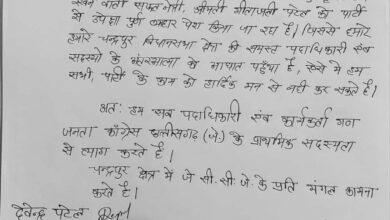 से उपेक्षा पूर्ण बाहर पेश किया जा रहा है। जिससे हमारे
हमारे चन्द्रपुर विधानसभा क्षेत्र की समस्त पदाधिकारी एंव
सदस्यों के अंतरात्मा को आघात पहुँचा है, ऐसे में हम
सभी, पार्टी के काम को हार्दिक मन से नहीं कर सकते है।
अतः हम सब पदाधिकारी एंव कार्यकर्ता गण
जनता काँग्रेस छत्तीसगढ़ (जे.) के प्राथमिक सदस्यता
से त्याग करते है।
चन्द्रपुर क्षेत्र में जे सी.सी.जे. के प्रति मंगल कामना
करते है।
देवेन्द्र पटेल